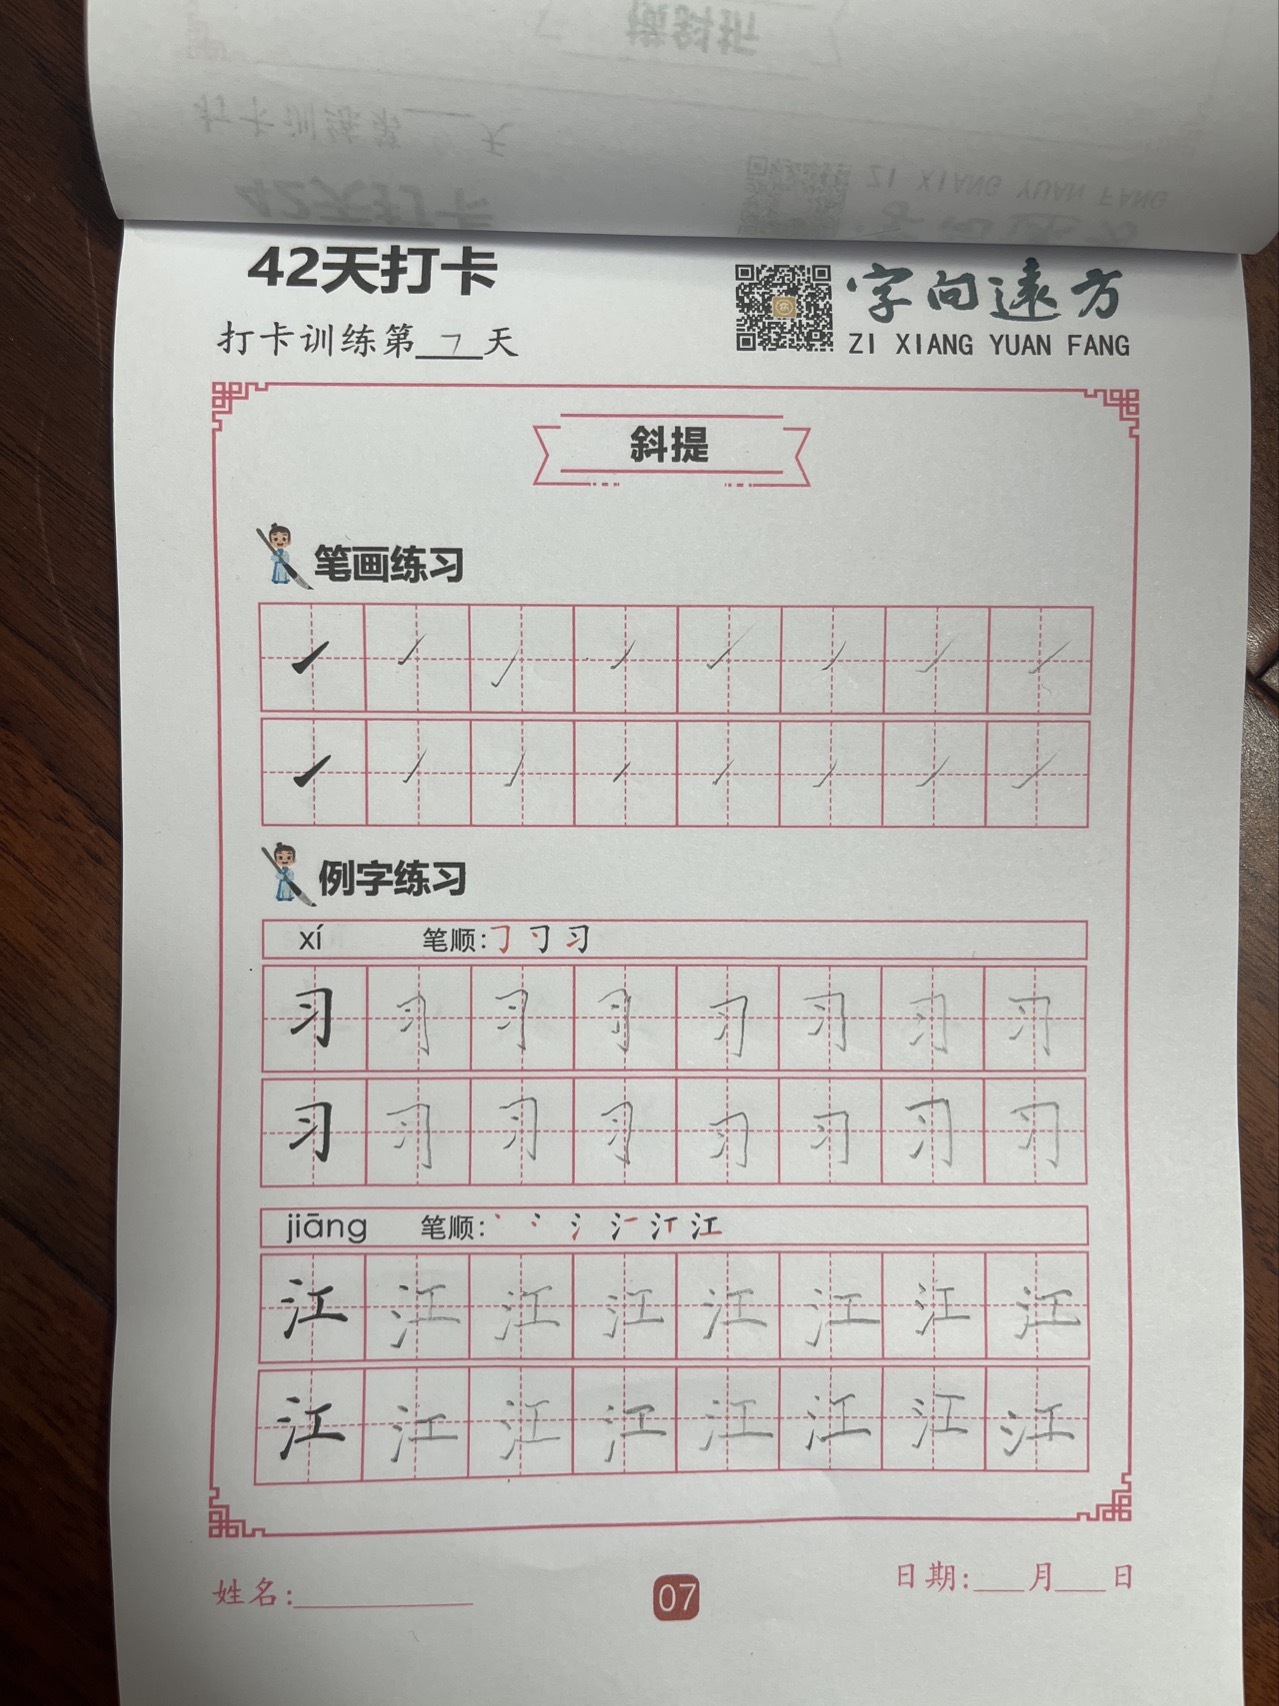 42天打卡
字向远方
ZI XIANG YUAN FANG
打卡训练第7天
斜提
笔画练习
例字练习
xí 笔顺:
习 习 习 习 习 习 习 习
习 习 习 习 习 习 习 习
jiāng 笔顺: 江
江 江 江 江 江 江 江 江
江 江 江 江 江 江 江 江
姓名:
07
日期:___月___日